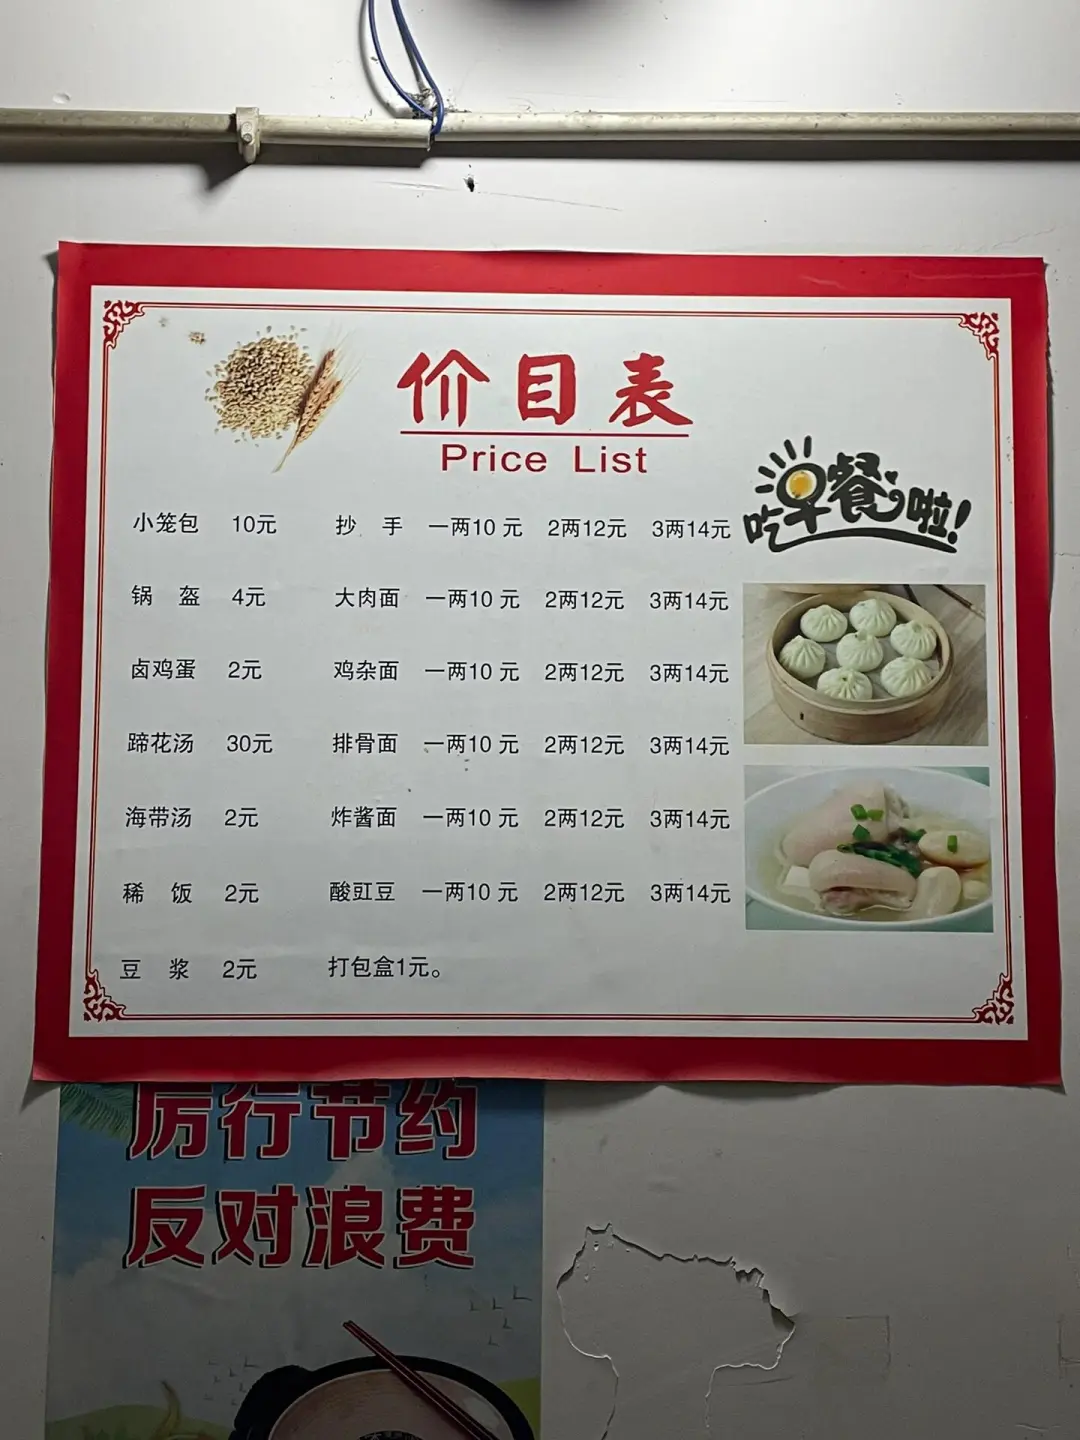 价目表
Price List
吃早餐啦!
小笼包 10元 抄 手 一两10 元 2两12元 3两14元
锅 盔 4元 大肉面 一两10 元 2两12元 3两14元
卤鸡蛋 2元 鸡杂面 一两10 元 2两12元 3两14元
蹄花汤 30元 排骨面 一两10 元 2两12元 3两14元
海带汤 2元 炸酱面 一两10 元 2两12元 3两14元
稀 饭 2元 酸豇豆 一两10 元 2两12元 3两14元
豆 浆 2元 打包盒1元。
厉行节约
反对浪费